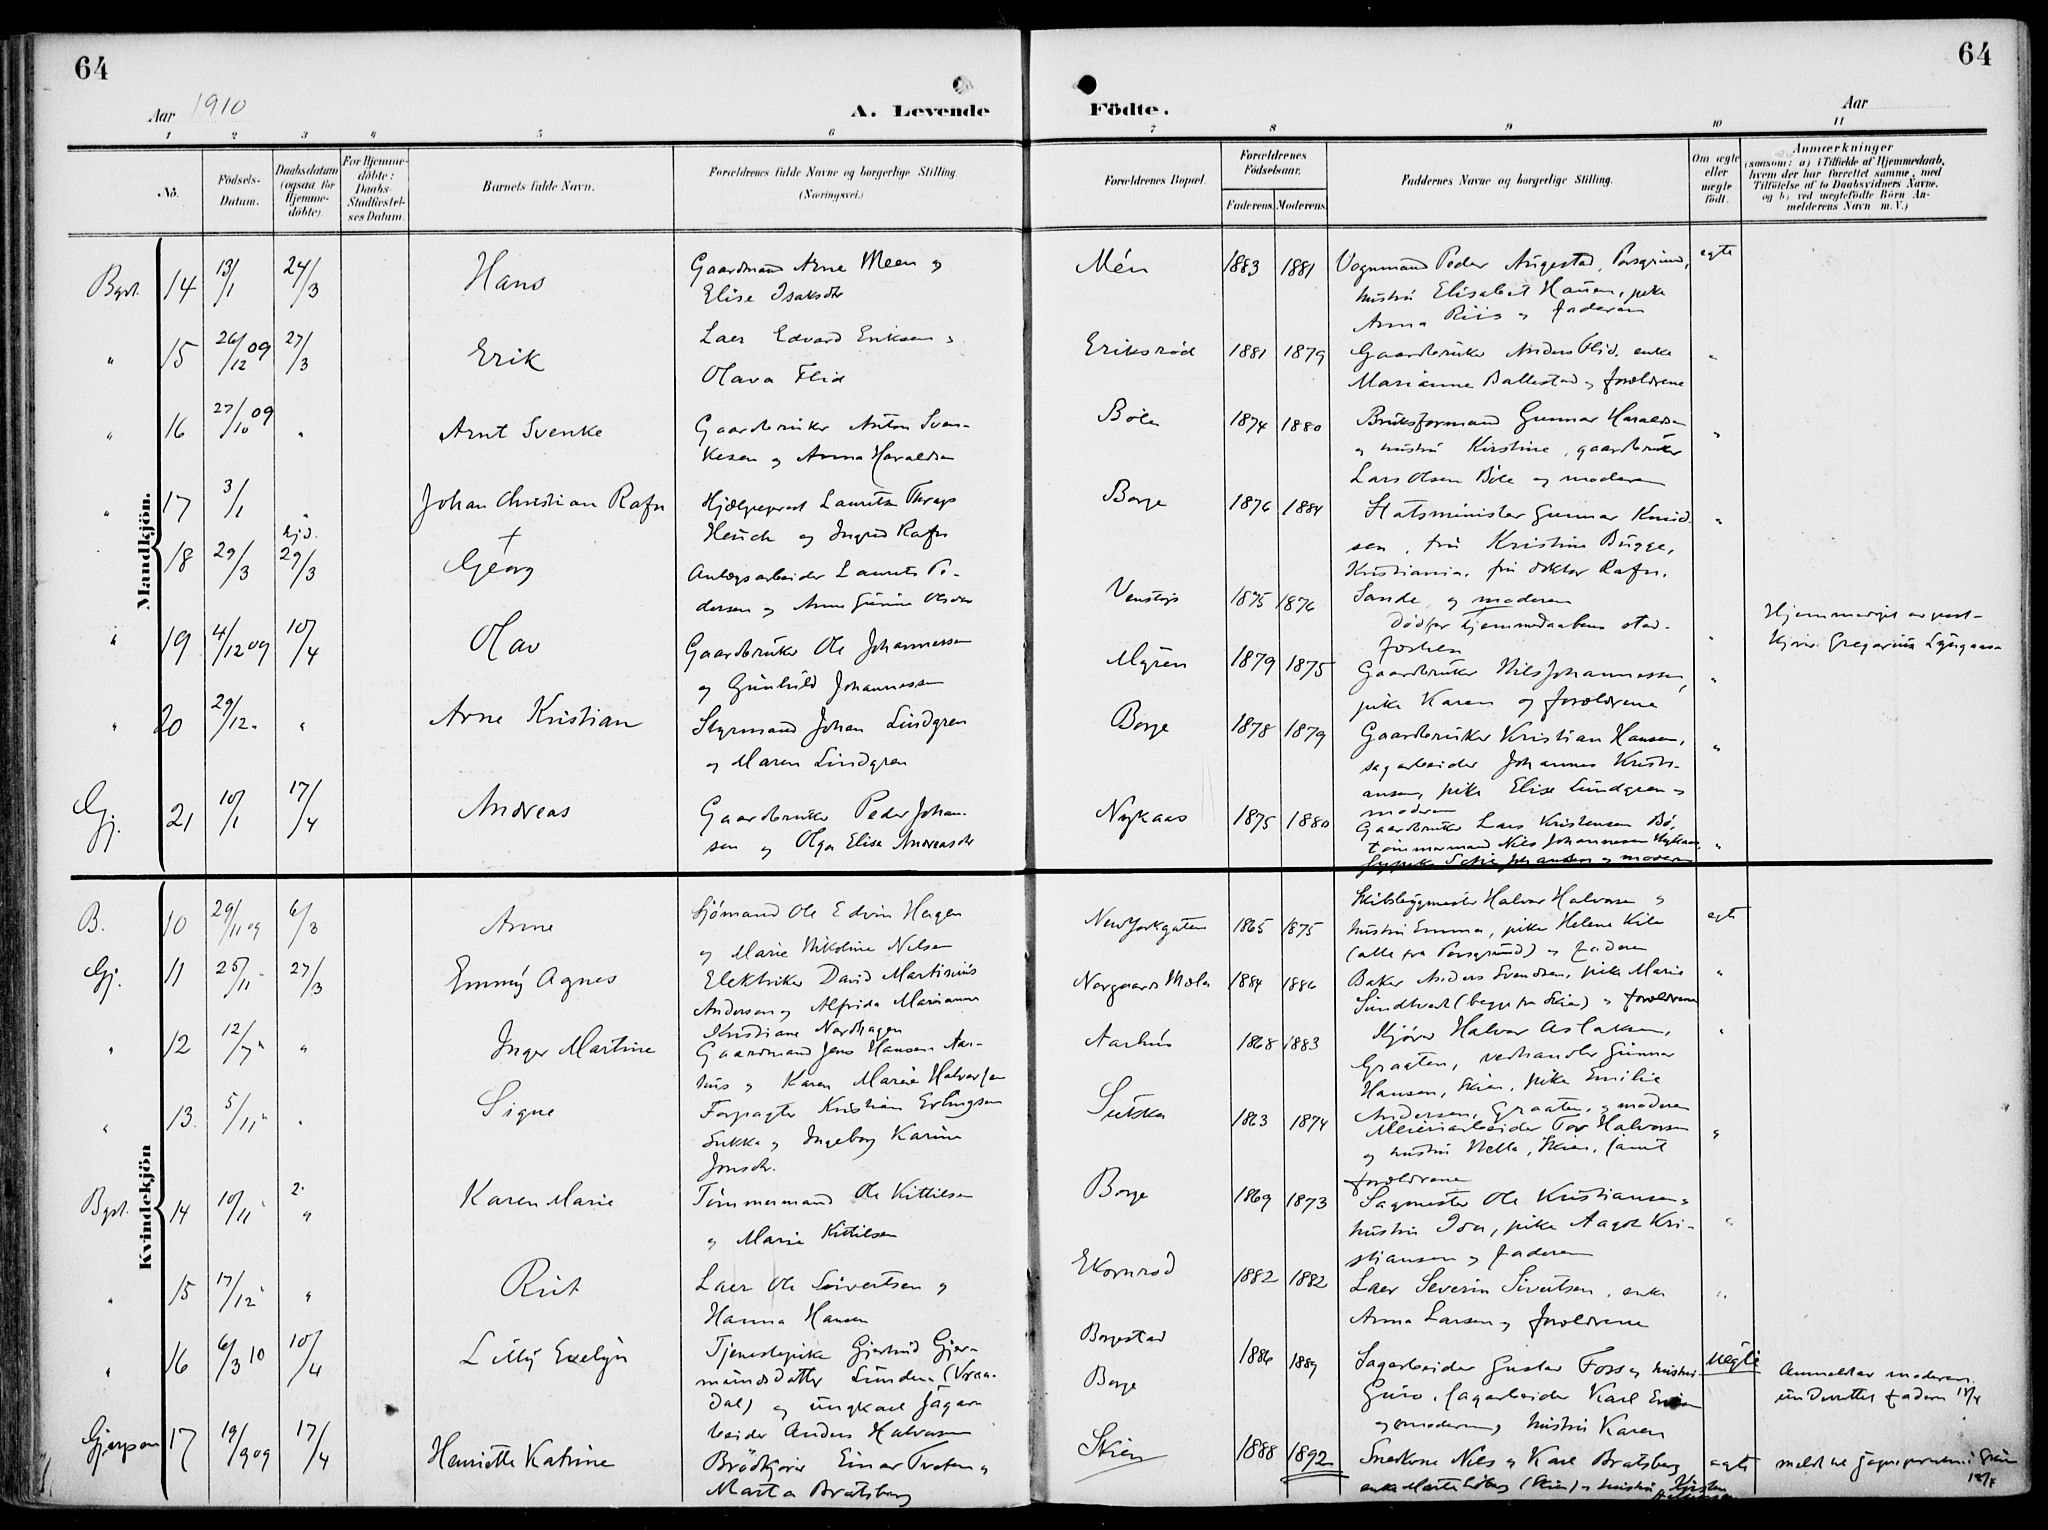 64
64
Aar 1910
A. Levende
Födte.
Aar
1 2 3 4 5 6 7 8 9 10 11
No.
Födsels-Datum.
Daabsdatum (ogsaa for Hjemme-döbte).
For Hjemme-döbte: Daabs-Stadfæstel-ses Datum.
Barnets fulde Navn.
Forældrenes fulde Navne og borgerlige Stilling
(Næringsvei.)
Forældrenes Bopæl.
Forældrenes Födselsaar.
Faderens. Moderens.
Faddernes Navne og borgerlige Stilling.
Om ægte eller uægte født.
Anmærkninger
(saasom: a) i Tilfælde af Hjemmedaab,
hvem der har forrettet samme, med
Tilföielse af to Daabsvidners Navne.
og b) ved uægtefödte Börn An-
melderens Navn m. V.)
Mandkjön.
Bgst. 14 13/1 24/3 Hans
Gaardmand Arne Meen og
Elise Isaksdtr
Mén 1883 1881
Vognmand Peder Augestad, Porsgrund,
hustru Elisabet Hansen, pike
Anna Riis og faderen
egte
" 15 26/12 09 27/3 Erik
Laer Edvard Eriksen og
Olava Flid
Eriksrød 1881 1879
Gaardbruker Anders Flid, enke
Marianne Ballestad og forældrene
"
" 16 27/10 09 " Arnt Svenke
Gaardbruker Anton Sven-
kesen og Anna Haraldsen
Böle 1874 1880
Bruksformand Gunnar Haraldsen
og hustru Kirstine, gaardbruker
Lars Olsen Böle og moderen
"
" 17 3/1 " Johan Christian Rafn
Hjælpeprest Lauritz Thrap
Heuch og Ingrid Rafn
Borge 1876 1884
Statsminister Gunnar Knud-
sen, fru Kristine Bugge,
Kristiania, fru doktor Rafn,
Sande, og moderen
"
18 29/3 hjd. 29/3 † Georg
Anlægsarbeider Laurits Pe-
dersen og Anne Gurine Olsdtr
Venstøp 1875 1876
Död før hjemmedaabens stad-
"
" 19 4/12 09 10/4 Olav
Gaardbruker Ole Johannessen
og Gunhild Johannessen
Myren 1879 1875
Gaardbruker Nils Johannessen,
pike Karen og forældrene
"
" 20 29/12 " " Arne Kristian
Styrmand Johan Lindgren
og Maren Lindgren
Borge 1878 1879
Gaardbruker Kristian Hansen,
sagarbeider Johannes Kristi-
ansen, pike Elise Lundgren og
moderen
"
Gj. 21 10/1 17/4 Andreas
Gaardbruker Peder Johan-
sen og Olga Elise Andreasdtr
Nykaas 1875 1880
Gaardbruker Lars Kristensen Bö,
tömmermand Nils Johannesen Nykaas,
pike Sofie Johansen og moderen
"
Kvindekjön
B. 10 29/11 09 6/3 Anne
Sjömand Ole Edvin Hagen
og Marie Nikoline Nilsen
NewYorkgaten 1865 1875
Skibsbygmester Halvor Halvorsen og
hustru Emma, pike Helene Kile
(alle fra Porsgrund) og faderen
egte
Gj. 11 25/11 " 27/3 Emmy Agnes
Elektriker David Martinius
Andersen og Alfrida Marianne
Kristiane Nordhagen
1884 1886
Baker Anders Svendsen, pike Marie
Sundtvedt (begge fra Skien) og forældrene
"
" 12 12/7 " " Inger Martine
Gaardmand Jens Hansen Aar-
hus og Karen Marie Halvorsen
Aarhus 1868 1883
Kjører Halvor Aslaksen,
Graaten, vedhandler Gunnar
Hansen, Skien, pike Emilie
Andersen, Graaten, og moderen
"
" 13 5/11 " " Signe
Forpagter Kristian Erlingsen
Sukka og Ingeborg Karine
Jonsdtr.
1863 1874
Meieriarbeider Tov Halvorsen
og hustru Nella, Skien, samt
forældrene
"
Bgst. 14 10/11 " 2. " Karen Marie
Tömmermand Ole Kittilsen
og Marie Kittilsen
Borge 1869 1873
Sagmester Ole Kristiansen og
hustru Ida, pike Aagot Kri-
stiansen og faderen
"
" 15 17/12 " " Rut
Laer Ole Sivertsen og
Hanna Hansen
Ekornrød 1882 1882
Laer Severin Sivertsen, enke
Anna Larsen og forældrene
"
" 16 6/3 10 10/4 Lilly Evelyn
Tjenestepike Gjertrud Gjer-
mundsdatter Lunden (Vraa-
dal) og ungkarl sagar-
beider Anders Halvorsen
Borgestad
Borge
1886 1889
Sagarbeider Gustav Foss og hustru
Guro, sagarbeider Karl
og moderen, hustru Karen
uegte
Anmeldt av moderen.
underrettet faderen 18/4
Gjerpen 17 19/9 09 17/4 Henriette Katrine
Brödkjører Einar Tveten og
Marta Bratsberg
Skien 1888 1892
Snekkerne Nils og Karl Bratsberg
enke Marte (Skien) og hustru Kirsten
egte
meldt til sognepresten i Skien
18/4